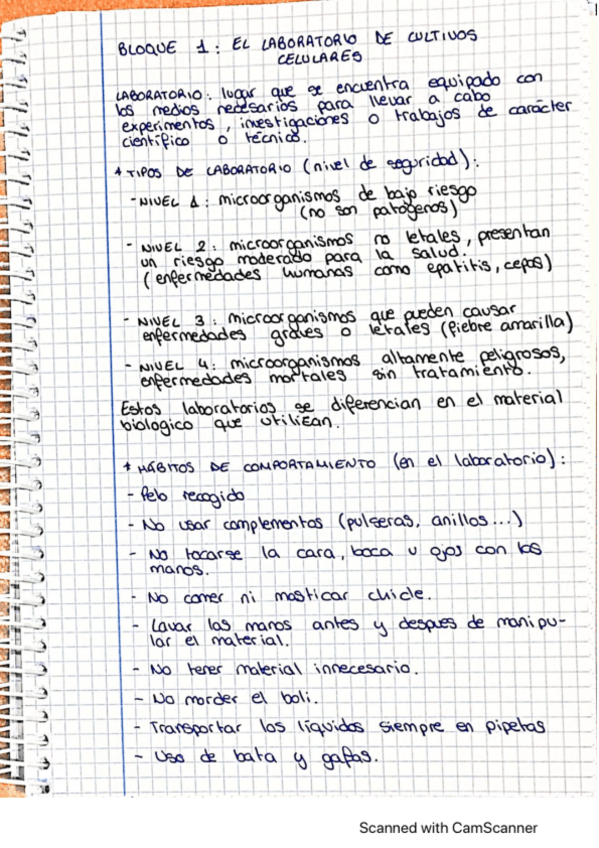 BLOQUE 1: EL LABORATORIO DE CULTIVOS
CELULARES
LABORATORIO: lugar que se encuentra equipado con
los medios necesarios para llevar a cabo
experimentos, investigaciones o trabajos de carácter
científico o técnico.
* TIPOS DE LABORATORIO (nivel de seguridad):
- NIVEL 1: microorganismos de bajo riesgo
(no son patógenos)
- NIVEL 2: microorganismos no letales, presentan
un riesgo moderado para la salud.
(enfermedades humanas como epatitis, cepas)
- NIVEL 3: microorganismos que pueden causar
enfermedades graves o letales (fiebre amarilla)
- NIVEL 4: microorganismos altamente peligrosos,
enfermedades mortales sin tratamiento.
Estos laboratorios se diferencian en el material
biologico que utilizan.
* HÁBITOS DE COMPORTAMIENTO (en el laboratorio):
- Pelo recogido
- No usar complementos (pulseras, anillos...)
- No tocarse la cara, boca u ojos con las
manos.
- No comer ni masticar chicle.
- Lavar las manos antes y despues de manipu-
lar el material.
- No tener material innecesario.
- No morder el boli.
- Transportar los líquidos siempre en pipetas
- Uso de bata y gafas.
Scanned with CamScanner